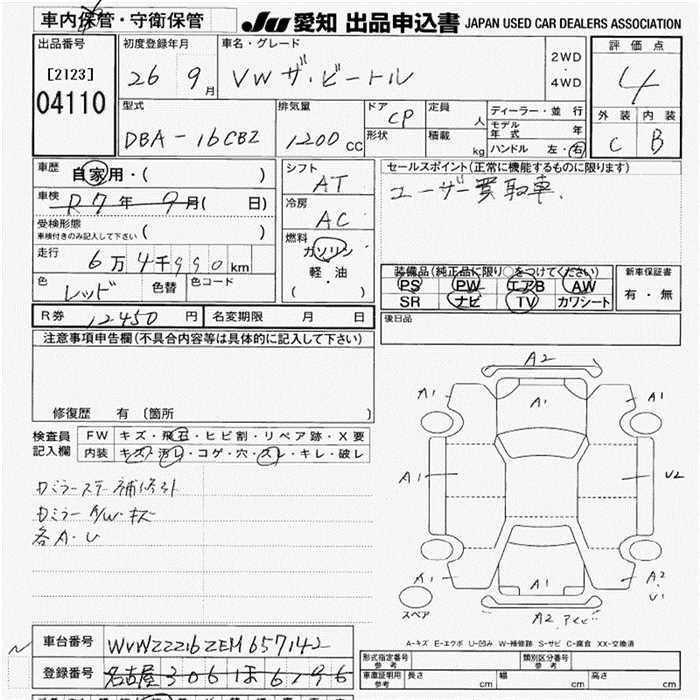 車内保管・守衛保管
JU 愛知 出品申込書 JAPAN USED CAR DEALERS ASSOCIATION
出品番号
[2123]
04110
初度登録年月
26 9月
車名・グレード
VW ザ・ビートル
2WD
・
4WD
評価点
4
外装 内装
C B
型式
DBA-16CBZ
排気量
1200 CC
ドア CP
形状
定員 人
積載 kg
ディーラー・並行
モデル年式 年
ハンドル 左・右
車歴
自家用・( )
車検
R7年 9月( 日)
受検形態
車検付きのみ記入して下さい ( )
走行
6万4千990km
色
レッド
色替
色コード
シフト
AT
冷房
AC
燃料
ガソリン
軽・油
( )
セールスポイント(正常に機能するものに限ります)
ユーザー買取車.
装備品(純正品に限り○をつけてください)
PS PW エアB AW
SR ナビ TV カワシート
新車保証書
有・無
R券 12450円
名変期限 月 日
後日品
注意事項申告欄(不具合内容等は具体的に記入して下さい)
修復歴 有〔箇所 〕
検査員
記入欄
FW キズ・飛石・ヒビ割・リペア跡・X要
内装 キズ・汚レ・コゲ・穴・スレ・キレ・破レ
各A・U
A2
A1 A1 A1
A1 U2
A1 A1 A2
U1
A2
スペア
A-キズ E-エクボ U-凹み W-補修跡 S-サビ C-腐食 XX-交換済
車台番号 WVWZZZ16ZEM657142
登録番号
形式指定番号
参考
類別区分番号
参考
車庫証明用
参考
長さ cm
幅 cm
高さ cm